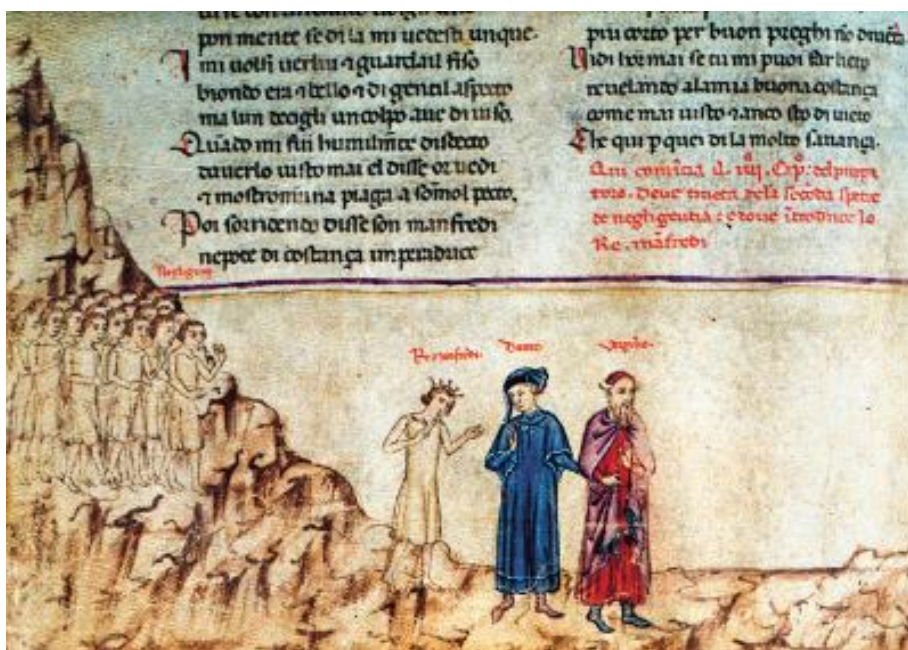 pon mente se di la mi uedesti unque.
Io mi uolsi uerlui ⁊ guardail fiso
biondo era ⁊ bello ⁊ di gentil aspecto
ma lun de cigli un colpo auea diuiso.
Quãdo mi fui humilmẽte disdecto
dauerlo uisto mai el disse or uedi
⁊ mostromi una piaga a somol pecto.
Poi sorridendo disse son manfredi
nepote di costança imperadrice
piu corto per buon preghi nõ
Vidi hoi mai se tu mi puoi far lieto
reuelando alamia buona costança
come mai uisto ⁊ anco sto diuieto
Che qui p quei di la molto sauança.
Qui comĩcia il .iiij. Cap.º del purga
toro. Doue tratta dela secõda spetie
de negligentia: e doue ĩtroduce lo
Re. mãfredi
Re manfredi.
Dante